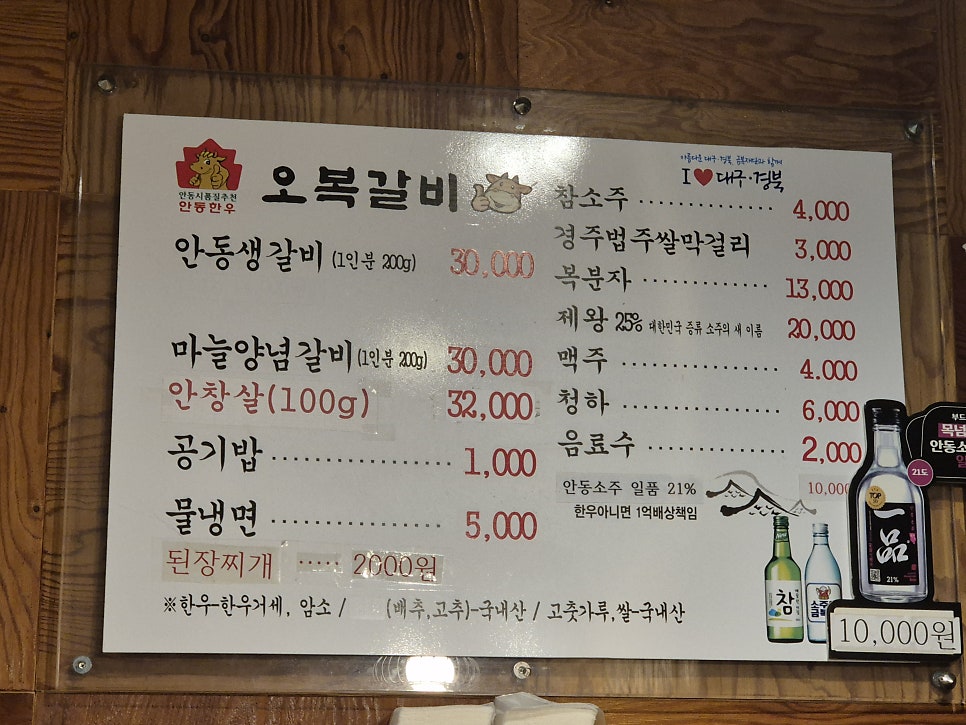 안동시품질추천
안동한우
오복갈비
아름다운 대구·경북 금복재단과 함께
I ♥ 대구·경북
안동생갈비 (1인분 200g) 30,000
마늘양념갈비 (1인분 200g) 30,000
안창살(100g) 32,000
공기밥 ·················· 1,000
물냉면 ·················· 5,000
된장찌개 ····· 2000원
참소주 ·············· 4,000
경주법주쌀막걸리 3,000
복분자 ············· 13,000
제왕 25% 대한민국 증류 소주의 새 이름 20,000
맥주 ················ 4.000
청하 ················ 6,000
음료수 ·············· 2,000
안동소주 일품 21% 10,000
한우아니면 1억배상책임
※한우-한우거세, 암소 / (배추,고추)-국내산 / 고춧가루,쌀-국내산
참
소주
금복
TOP
一品
21%
부드
목넘
안동소
일
21도
10,000원